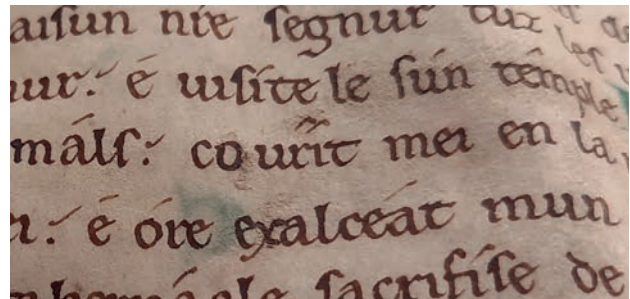 aiſun nr̄e ſegnur tuz les
ur: é uiſite le ſun témple
málſ: couurit mei en la
é óre exalceát mun
ſacrifiſe de